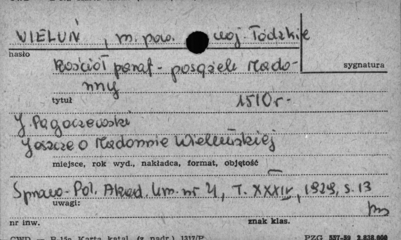 WIELUŃ, m. pow. woj. Łódzkie
hasło
Kościół paraf. - posążek Mado-
sygnatura
nny
tytuł 1510 r.
J. Pagaczewski
Jeszcze o Madonnie Wieluńskiej
miejsce, rok wyd., nakładca, format, objętość
Spraw. Pol. Akad. Um. nr 4, T. XXXIV, 1929, s. 13
uwagi:
nr inw. znak klas.